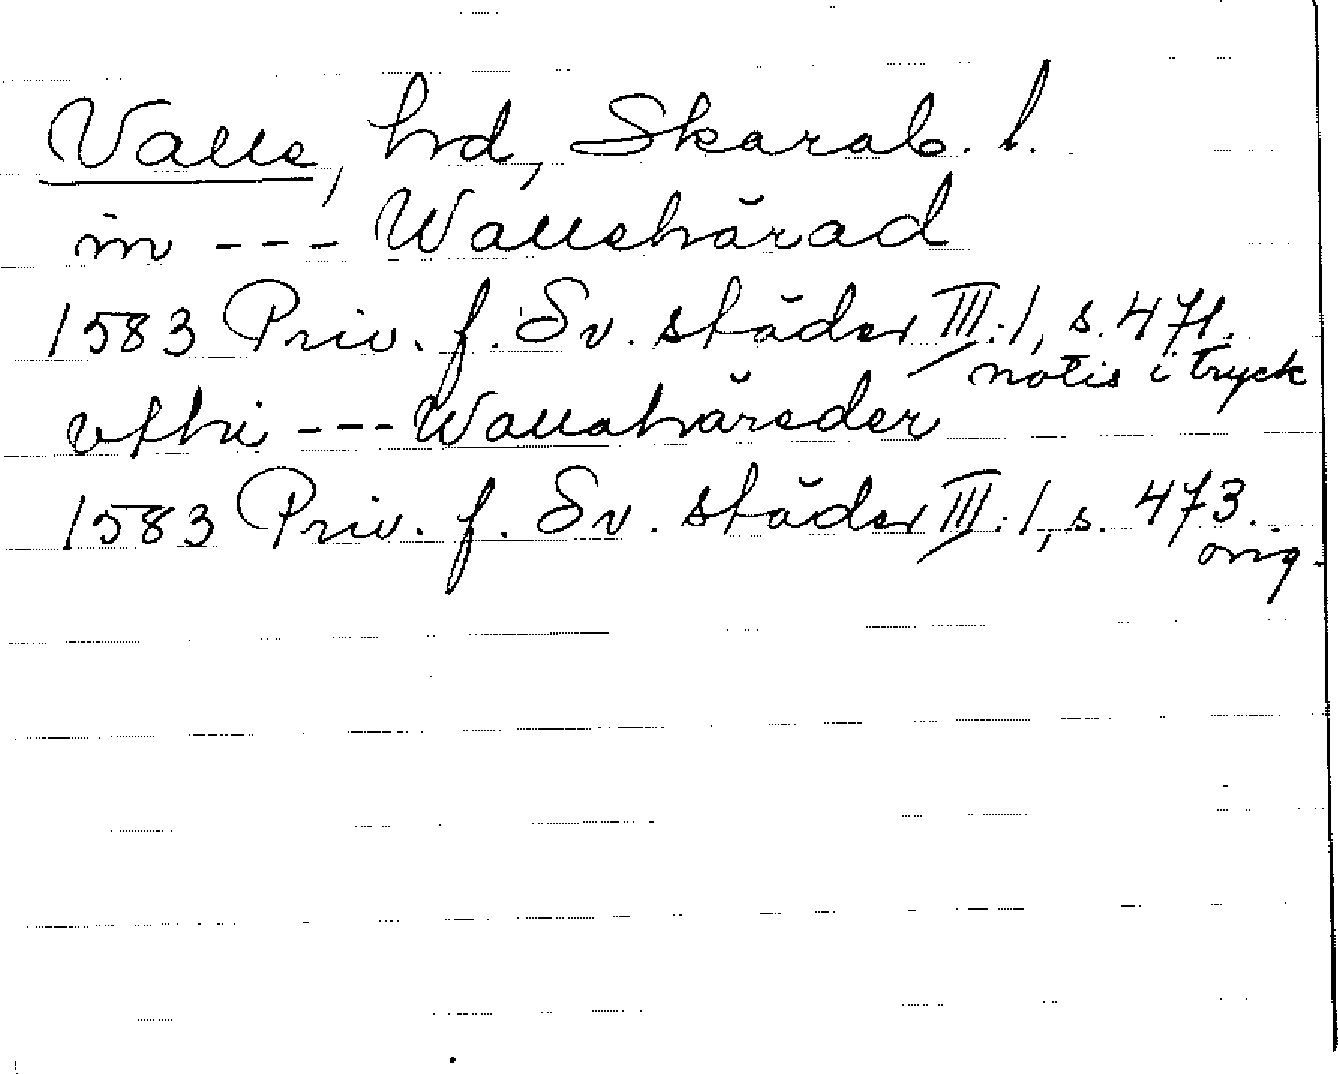 Valle, hrd, Skarab. l.
in --- Wallehärad
1583 Priv. f. Sv. städer III:1, s. 471.
notis i tryck
vthi --- Wallahäreder
1583 Priv. f. Sv. städer III:1, s. 473.
orig.